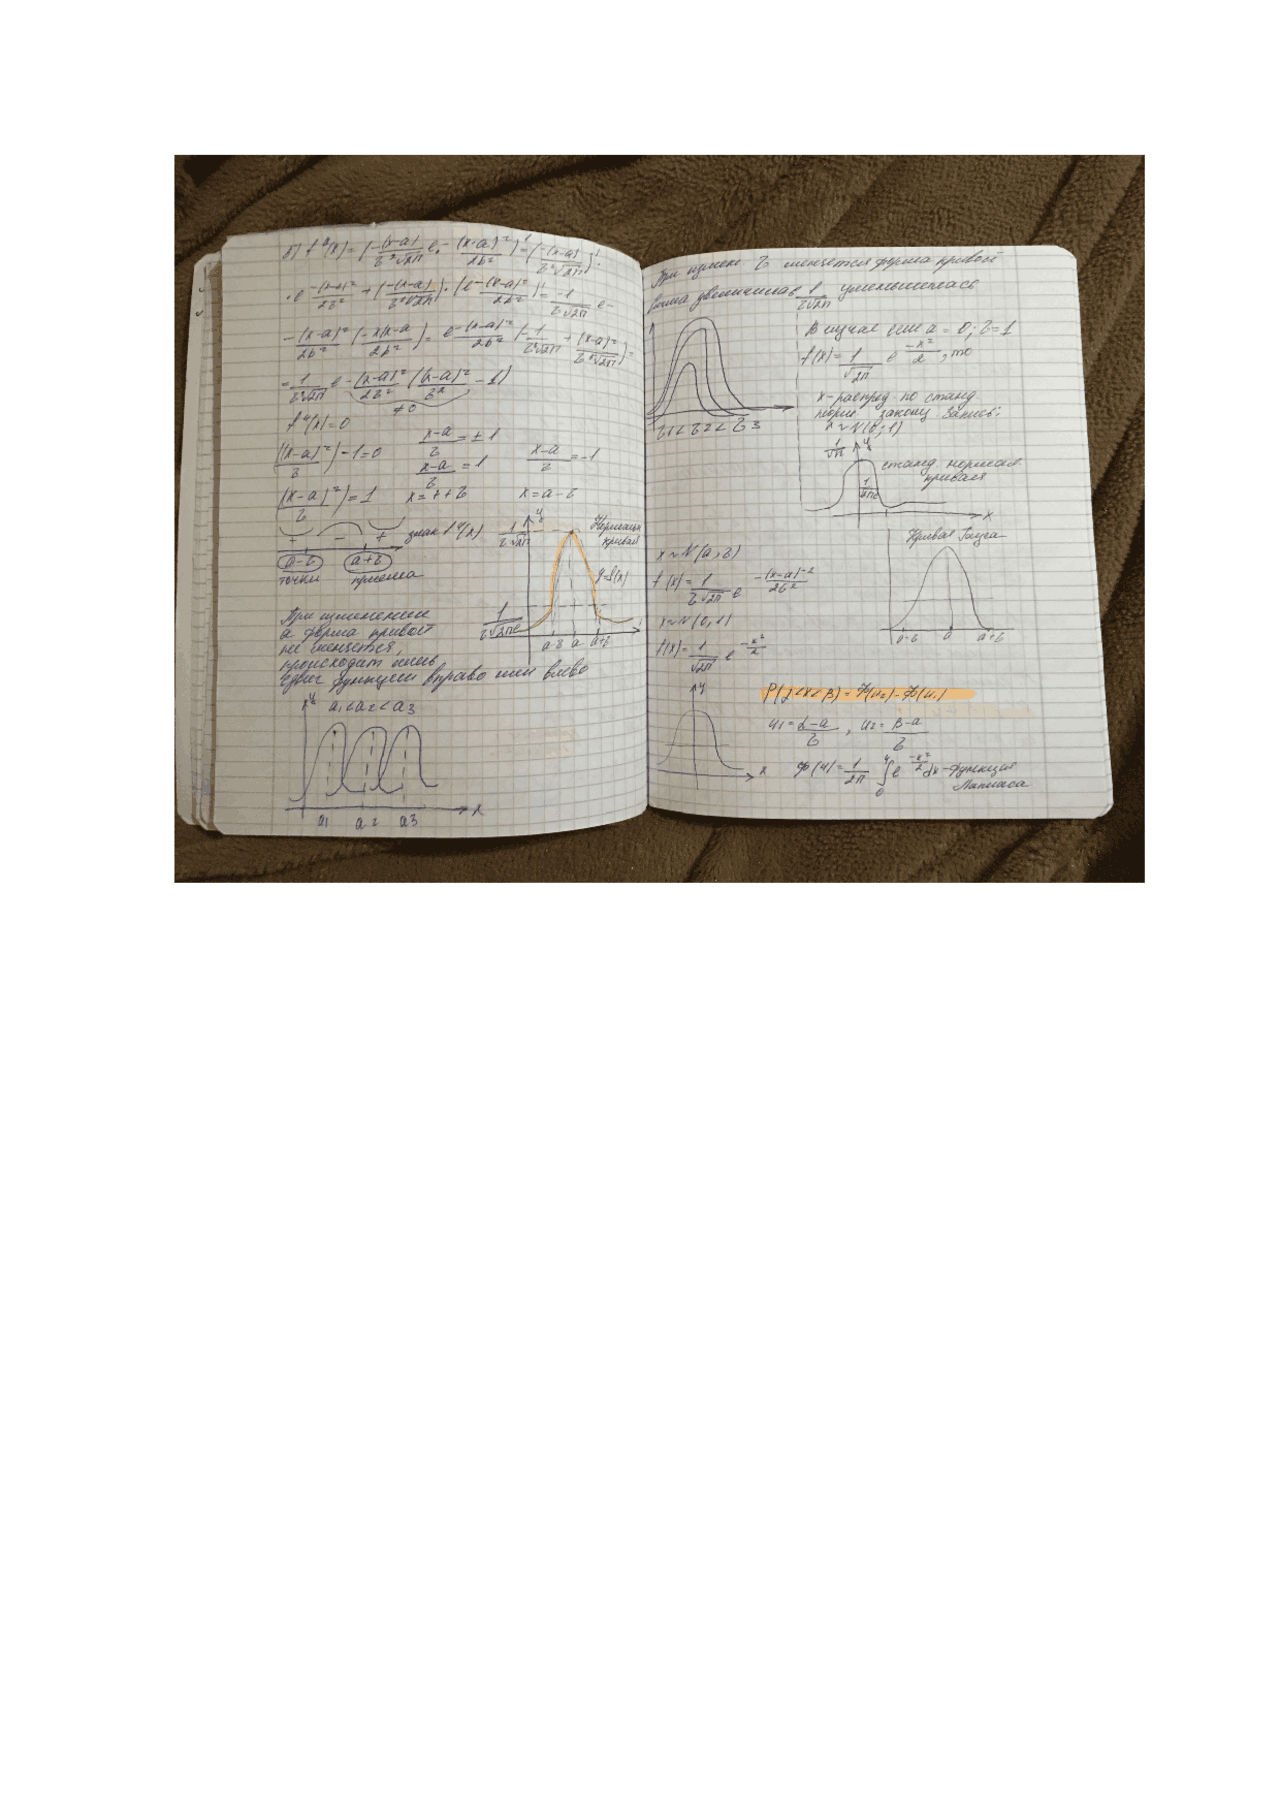 б) f''(x) = (-(x-a)/(σ³√2π) e - (x-a)²/2σ²)' = (-(x-a)/(σ³√2π))' ·
· e -(x-a)²/2σ² + (-(x-a)/(σ³√2π)) · (e -(x-a)²/2σ²)' = -1/(σ³√2π) e -
-(x-a)²/2σ² = e -(x-a)²/2σ² (-1/(σ³√2π) + (x-a)²/(σ⁵√2π)) =
= 1/(σ³√2π) e -(x-a)²/2σ² ((x-a)²/σ² - 1)
≠0
f''(x) = 0
(x-a)²/σ - 1 = 0
(x-a)²/σ = 1
x-a/σ = ± 1
x-a/σ = 1
x-a/σ = -1
x = a - σ
+ - + знак f''(x)
a-σ a+σ
точки
1/σ√2π y Нормальн
кривая
y=f(x)
1/σ√2πe
a-σ a a+σ
При изменении
a форма кривой
не меняется,
происходит лишь
сдвиг функции вправо или влево
y a1 < a2 < a3
a1 a2 a3 x
При измен. σ меняется форма кривой
1/σ√2π уменьшилась
σ1 < σ2 < σ3
В случае если a = 0; σ = 1
f(x) = 1/√2π e -x²/2, то
x-распред по станд
закону Запись:
x ~ N(0; 1)
y
станд. нормал.
кривая
x
Кривая Гаусса
a-σ a a+σ
x ~ N(a, σ)
f(x) = 1/σ√2π e -(x-a)²/2σ²
x ~ N(0, 1)
f(x) = 1/√2π e -x²/2
y
x
P(α<x<β) = Ф(u2) - Ф(u1)
u1 = α-a/σ, u2 = β-a/σ
Ф(u) = 1/2π ∫ 0 u e -x²/2 dx - функция
Лапласа